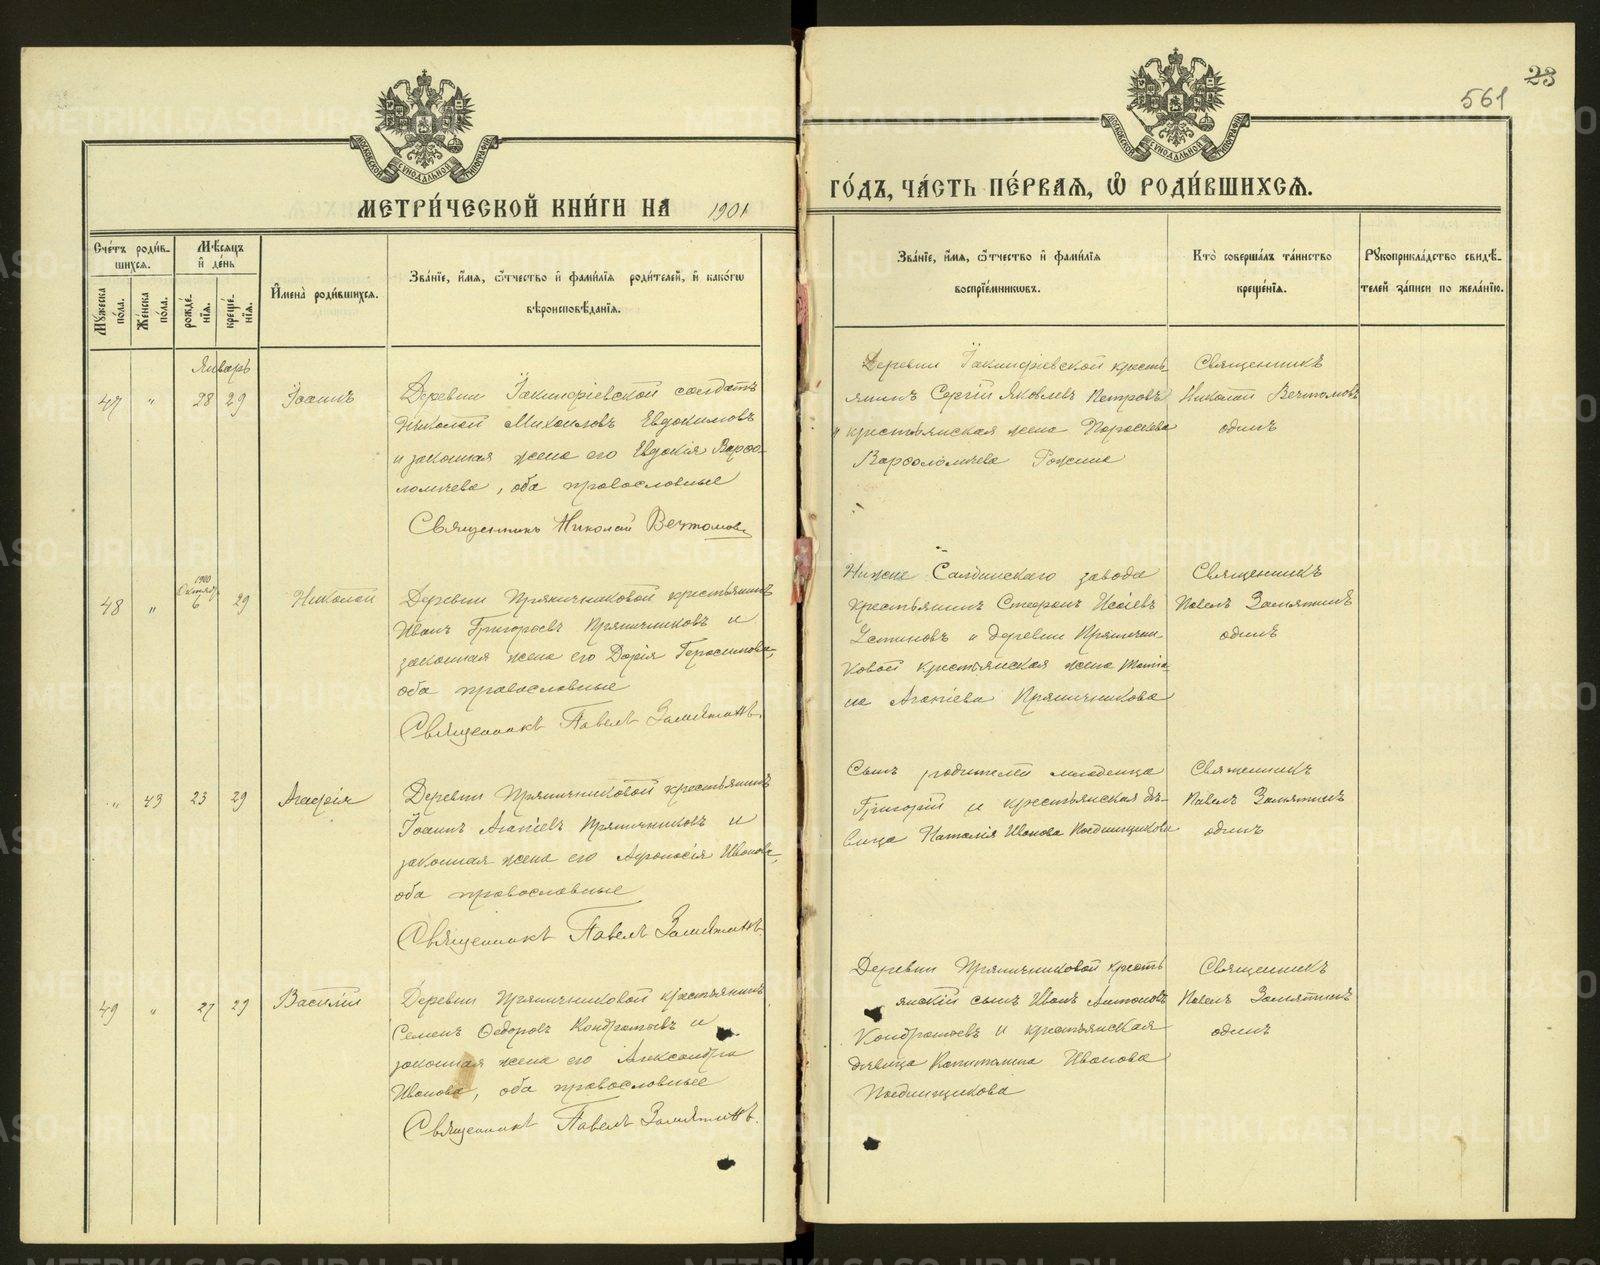 23
561
МОСКОВСКОЙ СѴНОДАЛЬНОЙ ТИПОГРАФІИ
МОСКОВСКОЙ СѴНОДАЛЬНОЙ ТИПОГРАФІИ
МЕТРИ́ЧЕСКОЙ КНИ́ГИ НА 1901
ГО́ДЪ, ЧА́СТЬ ПЕ́РВАѦ, Ѡ҆ РОДИ́ВШИХСѦ.
Сче́тъ роди́в-
шихсѧ.
Мꙋ́жеска по́ла.
Же́нска по́ла.
Мѣ́сѧцъ
и҆ де́нь
рожде́нїѧ.
креще́нїѧ.
И҆мена̀ роди́вшихсѧ.
Зва́нїе, и҆́мѧ, ѻ҆́тчество и҆ фами́лїѧ роди́телей, и҆ како́гѡ
вѣроисповѣ́данїѧ.
Зва́нїе, и҆́мѧ, ѻ҆́тчество и҆ фами́лїѧ
воспрїе́мникѡвъ.
Кто̀ соверша́лъ та́инство
креще́нїѧ.
Рꙋкоприкла́дство свидѣ́-
телей за́писи по жела́нїю.
Январь
47 " 28 29 Іоаннъ
Деревни Іакинфіевской солдатъ
Николай Михаиловъ Евдокимовъ
и законная жена его Евдокія Варфо-
ломеева, оба православные
Священникъ Николай Вечтомовъ
Деревни Іакинфіевской кресть
янинъ Сергій Яковлевъ Петровъ
и крестьянская жена Параскева
Варфоломеева
Священникъ
Николай Вечтомовъ
одинъ
1900
Октября
48 " 6 29 Николай
Деревни Пряничниковой крестьянинъ
Иванъ Григорьевъ Пряничниковъ и
законная жена его Дарія Герасимова,
оба православные
Священникъ Павелъ Замятинъ.
Нижне Салдинскаго завода
крестьянинъ Стефанъ Исаіевъ
Устиновъ и деревни Пряничн-
ковой крестьянская жена Татиа-
на Агапіева Пряничникова
Священникъ
Павелъ Замятинъ
одинъ
" 43 23 29 Агафія
Деревни Пряничниковой крестьянинъ
Іоаннъ Агапіевъ Пряничниковъ и
законная жена его Афанасія Иванова,
оба православные
Священникъ Павелъ Замятинъ.
Сынъ родителей младенца
Григорій и крестьянская дѣ-
вица Наталія Иванова Поединщикова
Священникъ
Павелъ Замятинъ
одинъ
49 " 27 29 Василій
Деревни Пряничниковой крестьянинъ
Семенъ Ѳедоровъ Кондратьевъ и
законная жена его Александра
Иванова, оба православные
Священникъ Павелъ Замятинъ.
Деревни Пряничниковой кресть
янскій сынъ Иванъ Антоновъ
Кондратьевъ и крестьянская
дѣвица Капитолина Иванова
Поединщикова
Священникъ
Павелъ Замятинъ
одинъ
METRIKI.GASO-URAL.RU